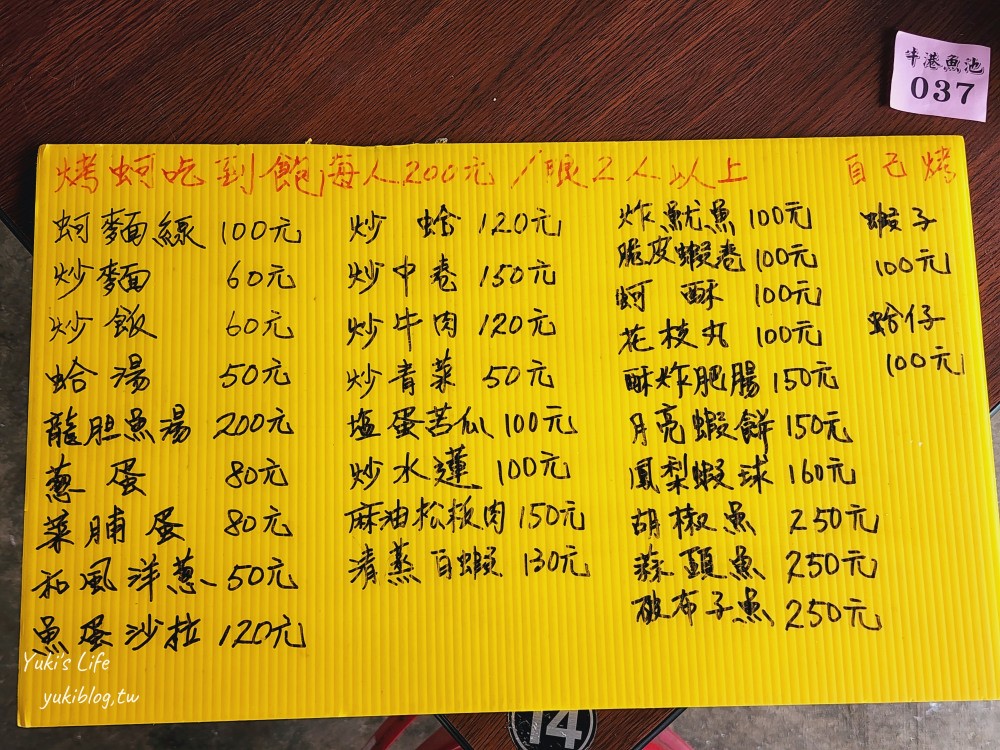 牛港魚池
037
烤蚵吃到飽每人200元/限2人以上
自己烤
蚵麵線 100元
炒麵 60元
炒飯 60元
蛤湯 50元
龍胆魚湯 200元
蔥蛋 80元
菜脯蛋 80元
和風洋蔥 50元
魚蛋沙拉 120元
炒蛤 120元
炒中卷 150元
炒牛肉 120元
炒青菜 50元
塩蛋苦瓜 100元
炒水蓮 100元
麻油松板肉 150元
清蒸白蝦 130元
炸魷魚 100元
脆皮蝦卷 100元
蚵酥 100元
花枝丸 100元
酥炸肥腸 150元
月亮蝦餅 150元
鳳梨蝦球 160元
胡椒魚 250元
蒜頭魚 250元
破布子魚 250元
蝦子
100元
蛤仔
100元
Yuki's Life
yukiblog,tw
14